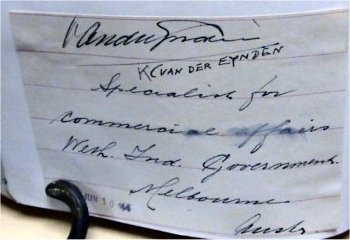 Vandereynden
K C VAN DER EYNDEN
Specialist for
commercial affairs
Neth. Ind. Government.
Melbourne
JUN 10 '44
Austr.